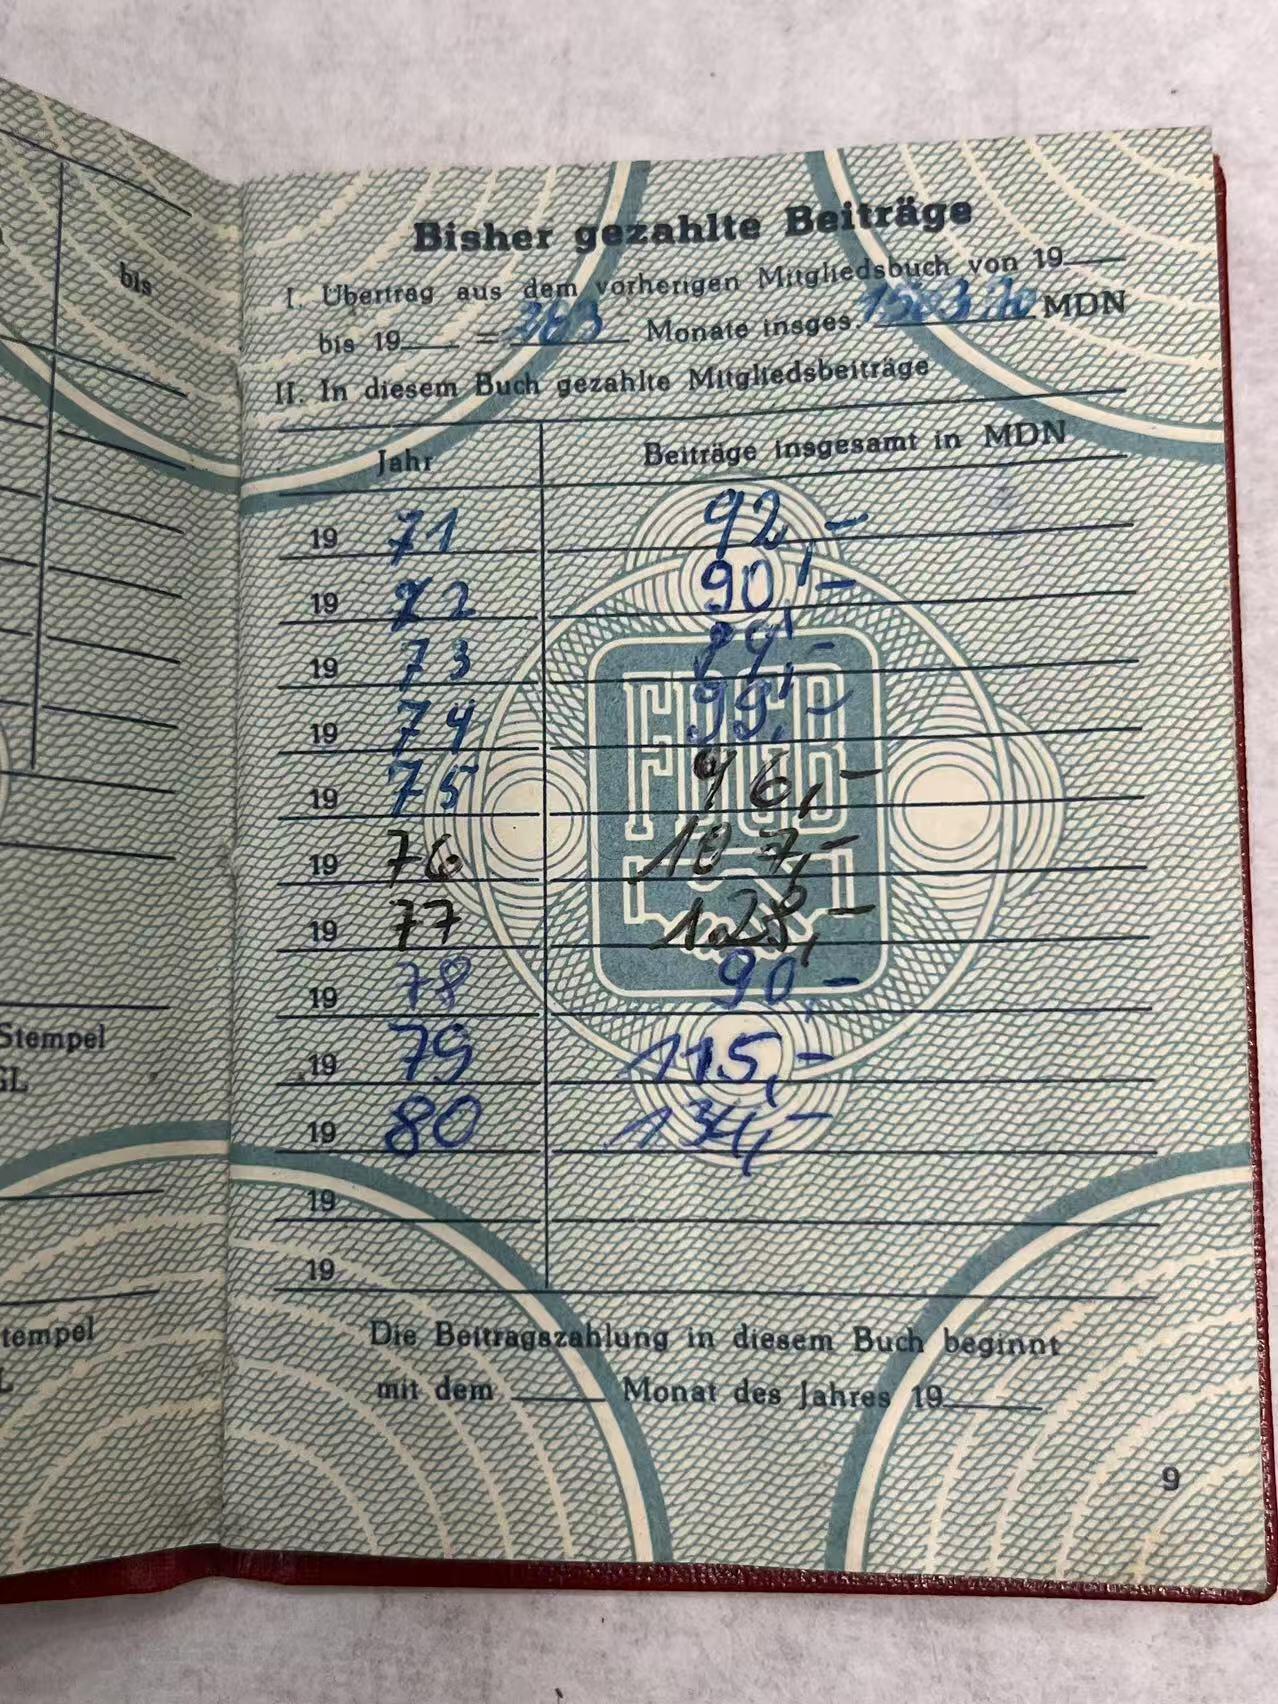 bis
Stempel
GL
tempel
L
Bisher gezahlte Beiträge
I. Übertrag aus dem vorherigen Mitgliedsbuch von 19
bis 19 = 363 Monate insges. MDN
II. In diesem Buch gezahlte Mitgliedsbeiträge
Jahr Beiträge insgesamt in MDN
19 71 92,-
19 72 90,-
19 73 89,-
19 74 99,-
19 75 96,-
19 76 107,-
19 77
19 78 90,-
19 79 115,-
19 80 134,-
19
19
FDGB
Die Beitragszahlung in diesem Buch beginnt
mit dem Monat des Jahres 19
9